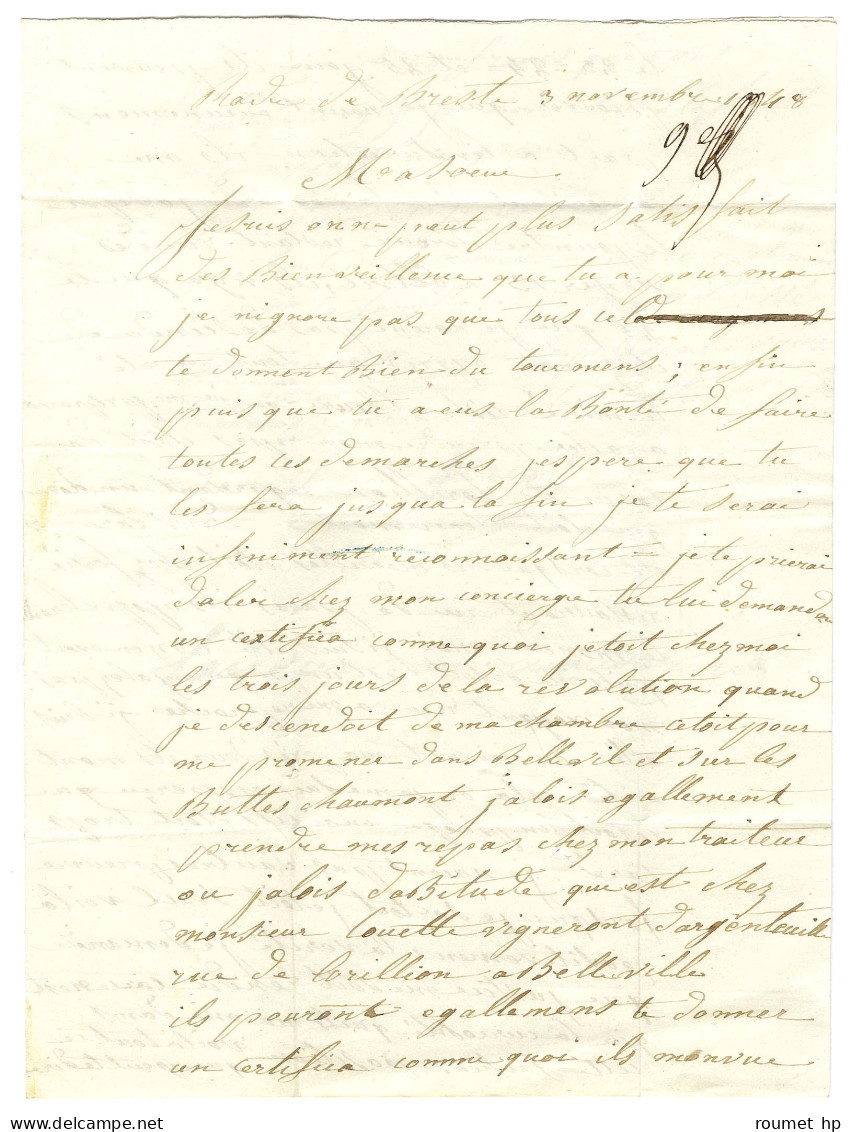 Rade de Breste 3 novembre 1848
Ma soeur
Je suis on ne peut plus satisfait
des Bienveillence que tu a pour moi
je nignore pas que tous cela
te donnent Bien du tourmens ; enfin
puis que tu a eus la Bonté de faire
toutes ces demarches jespere que tu
les fera jusqua la fin je te serai
infiniment reconnoissant = je te prierai
daler chez mon concierge tu lui demandra
un certifica comme quoi jetoit chez moi
les trois jours de la revolution quand
je descendoit de ma chambre cetoit pour
me promener dans Bellevil et sur les
Buttes chaumont jalois egallement
prendre mes repas chez mon traiteur
ou jalois dabitude qui est chez
monsieur Couette vigneront dargenteuille
rue de Lorillion a Belleville
ils pouront egallemens te donner
un certifica comme quoi ils monvue
roumet hp